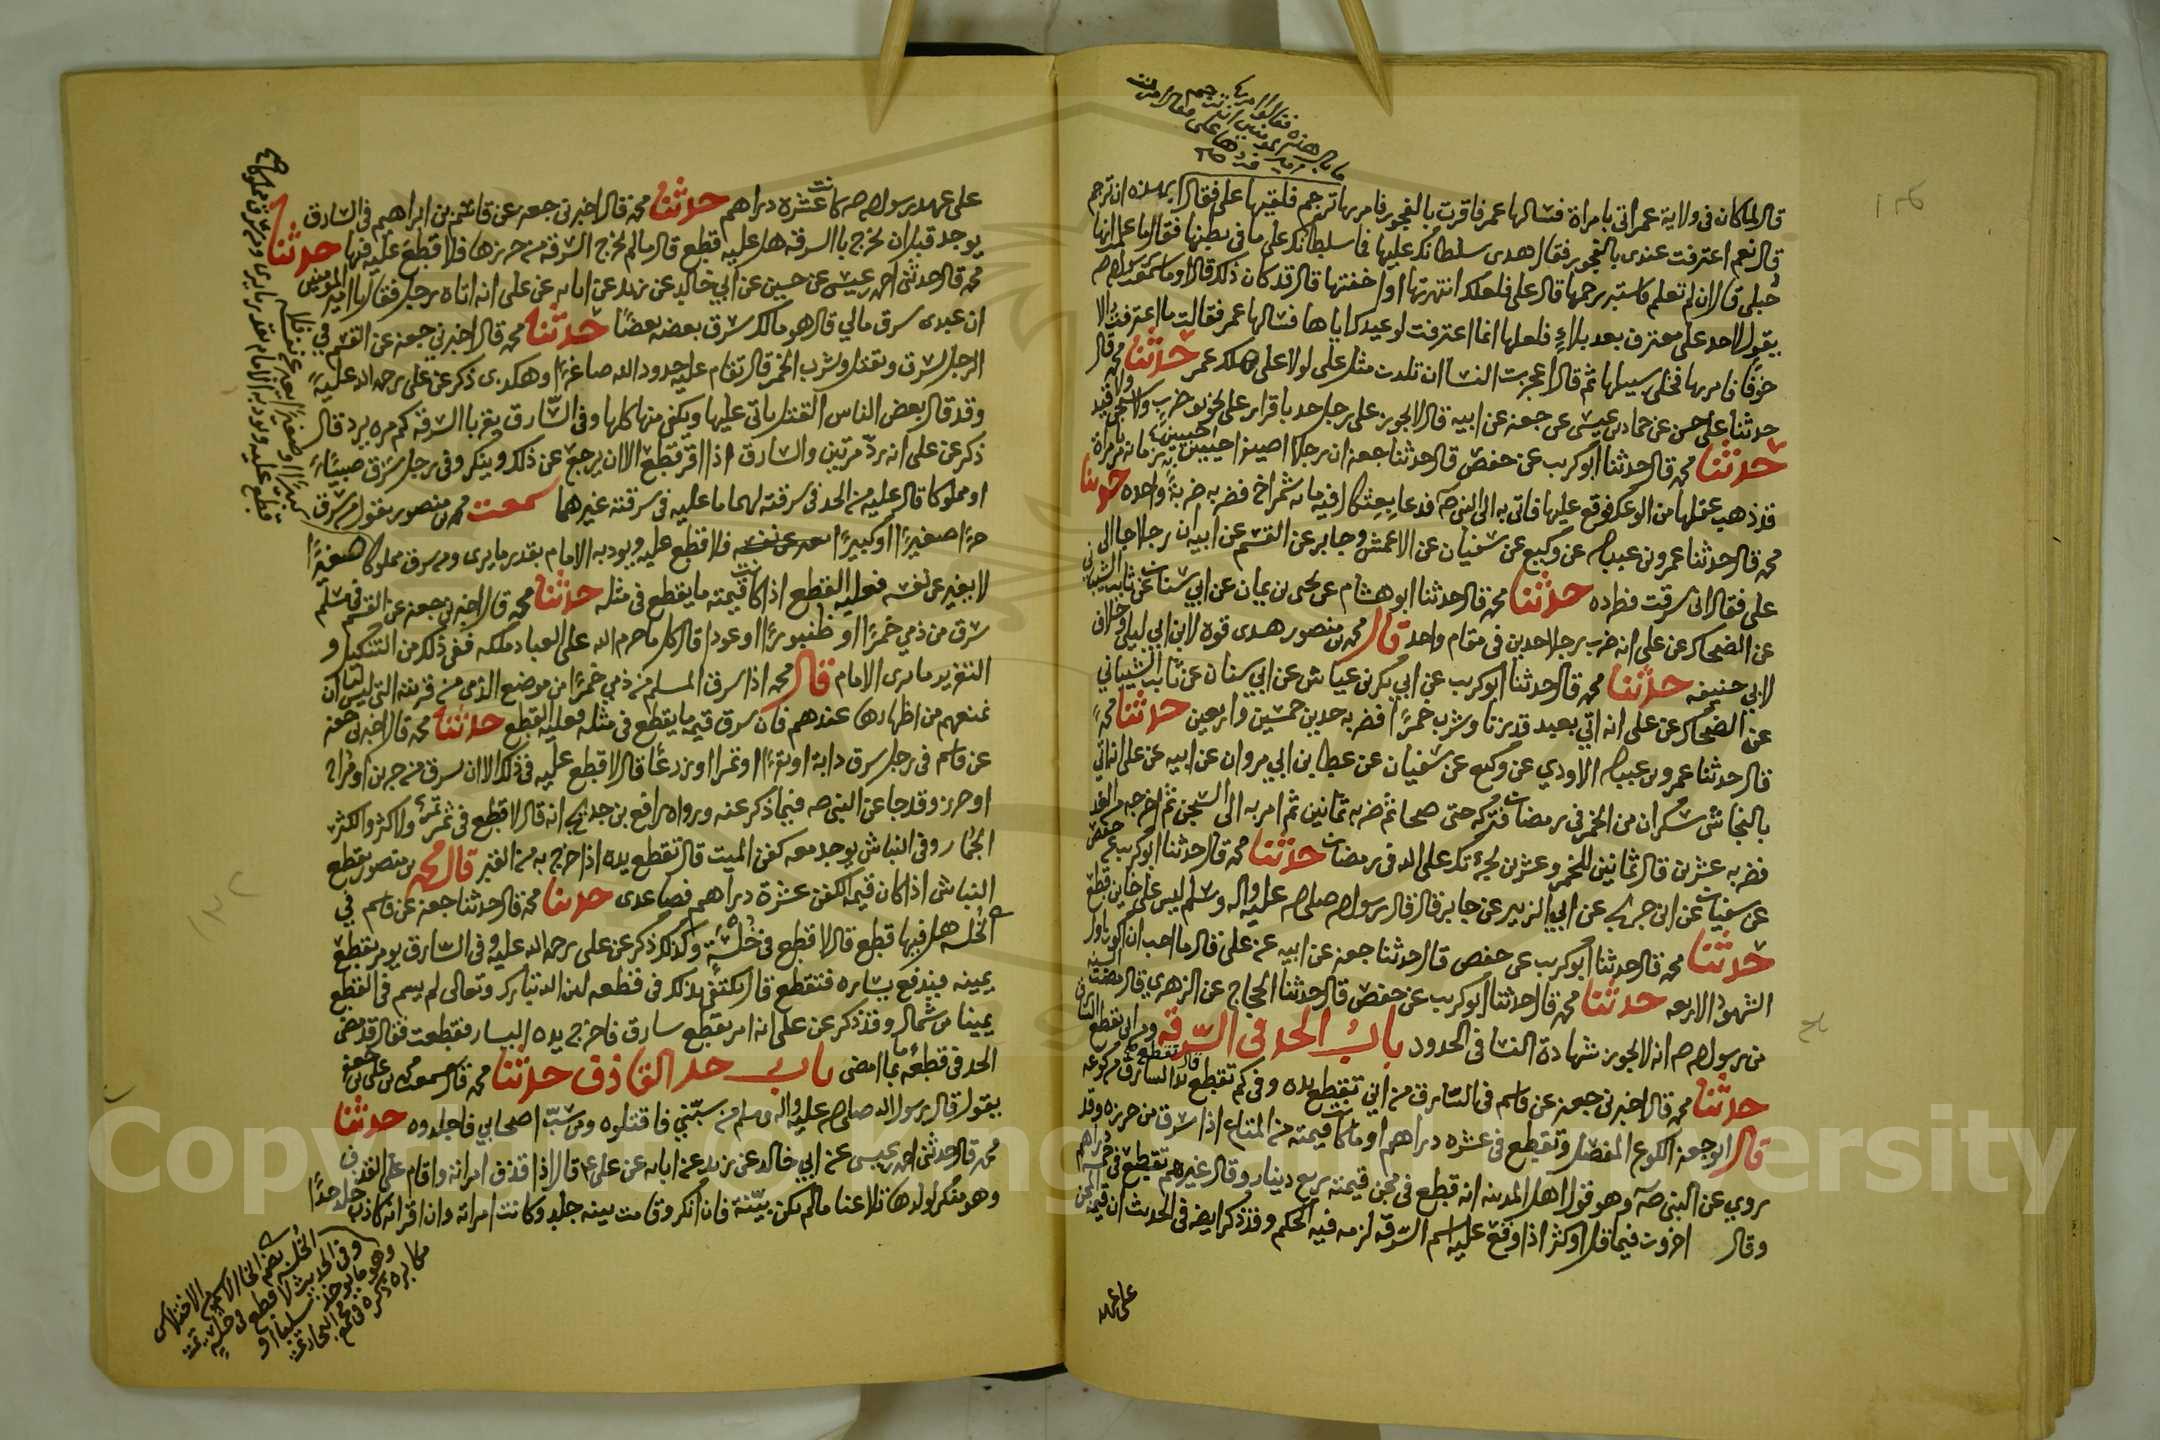 ما بال هذه فقالوا امر بها
عمر ان ترجم
فردها علي فقال امرت
قال لما كان في ولاية عمر اتي بامراة فسالها عمر فاقرت بالفجور فامر بها ترجم فلقيها علي فقال ان ترجم
قال نعم اعترفت عندي بالفجور فقال هذى سلطانك عليها فما سلطانك على ما في بطنها فقال ما علمت انها
حبلى قال ان لم تعلم فاستبر رحمها قال علي فلعلك انتهرتها او اخفتها قال قد كان ذلك قال او ما سمعت رسول الله صه
يقول لا حد على معترف بعد بلاء فلعلها انما اعترفت لوعيدك اياها فسالها عمر فقالت ما اعترفت الا
خوفا فامر بها فخلى سبيلها ثم قال اعجزت النسا ان تلدن مثل علي لولا علي هلك عمر حدثنا محمد قال
حدثنا علي حسن عن حماد بن عيسى عن جعفر عن ابيه قال لا يجوز على رجل حد باقرار على تخويف ضرب ولا سجن ولا قيد
حدثنا محمد قال حدثنا ابوكريب عن حفص قال حدثنا جعفر ان رجلا بامراة
قد ذهب عقلها من الوعك فوقع عليها فاتي به الى النبي صه فدعا بعثكال فيه مائة شمراخ فضربه ضربة واحده حدثنا
محمد قال حدثنا عمرو بن عبدالله عن وكيع عن سفيان عن الاعمش وجابر عن القسم عن ابيه ان رجلا جا الى
علي فقال اني سرقت فطرده حدثنا محمد قال حدثنا ابو هشام عن يحيى بن يمان عن ابي سنان عن ثابت الشيباني
عن الضحاك عن علي انه ضرب رجلا حدين في مقام واحد قال محمد بن منصور هذى قوة لابن ابي ليلى وخلاف
لابي حنيفه حدثنا محمد قال حدثنا ابوكريب عن ابي بكر بن عياش عن ابي سنان عن ثابت الشيباني
عن الضحاك عن علي انه اتي بعبد قد زنا وشرب خمرا فضربه حدين خمسين واربعين حدثنا محمد
قال حدثنا عمرو بن عبدالله الاودي عن وكيع عن سفيان عن عطا بن ابي مروان عن ابيه عن علي انه اتي
بالنجاشي سكران من الخمر في رمضان فتركه حتى صحا ثم ضربه ثمانين ثم امر به الى السجن ثم اخرجه من الغد
فضربه عشرين قال ثمانين للخمر وعشرين لجرءتك على الله في رمضان حدثنا محمد قال حدثنا ابوكريب عن حفص
عن سفيان عن ابن جريج عن ابي الزبير عن جابر قال قال رسول الله صلى الله عليه واله وسلم ليس على خاين قطع
حدثنا محمد قال حدثنا ابوكريب عن حفص قال حدثنا جعفر عن ابيه عن علي قال ما احب ان اكون اول
الشهود الاربعه حدثنا محمد قال حدثنا ابوكريب عن حفص قال حدثنا الحجاج عن الزهري قال مضت السنه
من رسول الله صه انه لا يجوز شهادة النسا في الحدود باب الحد في السرقه
حدثنا محمد قال اخبرني جعفر عن قاسم في السارق من اين تقطع يده وفي كم تقطع
قال ابو جعفر الكوع المفصل وتقطع في عشره دراهم او ما كانت قيمته من المتاع اذا سرق من حرزه وقد
روي عن النبي صه وهو قول اهل المدينه انه قطع في مجن قيمته ربع دينار وقال غيرهم تقطع في خمسه دراهم
وقال اخرون فيما قل او كثر اذا وقع عليه اسم السرقه لزمه فيه الحكم وقد ذكر ايضه في الحديث ان قيمة المجن
على عهد
على عهد رسول الله صه كانت عشره دراهم حدثنا محمد قال اخبرني جعفر عن قاسم بن ابراهيم في السارق
يوجد قبل ان يخرج بالسرقه هل عليه قطع قال ما لم يخرج السرقه من حرزها فلا قطع عليه فيها حدثنا
محمد قال حدثني احمد بن عيسى عن حسين عن ابي خالد عن زيد عن ابائه عن علي انه اتاه رجل فقال يا امير المومنين
ان عبدى سرق مالي قال هو مالك سرق بعضه بعضا حدثنا محمد قال اخبرني جعفر عن القسم في
الرجل سرق وتقتل وشرب الخمر قال تقام عليه حدود الله صاغرا وهكذى ذكر عن علي رحمه الله عليه
وقد قال بعض الناس القتل ياتي عليها ويكفي منها كلها وفي السارق يقر بالسرقه كم مره يرد قال
ذكر عن علي انه رد مرتين والسارق اذا اقر قطع الا ان يرجع عن ذلك وينكر وفي رجل سرق صبيا
او مملوكا قال عليه من الحد في سرقته لهما ما عليه في سرقته غيرهما سمعت محمد بن منصور يقول من سرق
حرا صغيرا او كبيرا فلا قطع عليه ويودبه الامام بقدر ما يرى ومن سرق مملوكا صغيرا
لا يغير عن نفسه فعليه القطع اذا كانت قيمته ما يقطع في مثله حدثنا محمد قال اخبرني جعفر عن القسم في مسلم
سرق من ذمي خمرا او طنبورا او عودا قال كل ما حرم الله على العباد ملكه ففي ذلك من التنكيل و
التعزير ما يرى الامام قال محمد اذا سرق المسلم من ذمي خمرا من موضع الذمي من قريته التي ليس لنا ان
نمنعهم من اظهارها عندهم فان سرق قيمة ما يقطع في مثله فعليه القطع حدثنا محمد قال اخبرني جعفر
عن قاسم في رجل سرق دابة او بقرا او تمرا او زرعا قال لا قطع عليه في ذلك الا ان سرق من جرين او مراح
او حرز وقد جا عن النبي صه فيما ذكر عنه ورواه رافع بن خديج انه قال لا قطع في ثمر ولا كثر والكثر
الجمار وفي النباش يوجد معه كفن الميت قال تقطع يده اذا خرج به من القبر قال محمد بن منصور يقطع
النباش اذا كان قيمة الكفن عشرة دراهم فصاعدى حدثنا محمد قال حدثنا جعفر عن قاسم في
الخلسه هل فيها قطع قال لا قطع في خلسة وكذلك ذكر عن علي رحمه الله عليه وفي السارق يومر بقطع
يمينه فيدفع يساره فتقطع قال يكتفى بذلك في قطعه لان الله تبارك وتعالى لم يسم في القطع
يمينا من شمال وقد ذكر عن علي انه امر بقطع سارق فاخرج يده اليسار فقطعت فقال قد مضى
الحد في قطعه ما امضى باب حد القاذف حدثنا محمد قال سمعت محمد بن علي بن جعفر
يقول قال رسول الله صلى الله عليه واله وسلم من سبني فاقتلوه ومن سب اصحابي فاجلدوه حدثنا
محمد قال حدثني احمد بن عيسى عن ابي خالد عن زيد عن ابائه عن علي قال اذا قذف امراته واقام على القذف
وهو منكر لولدها تلاعنا ما لم تكن بينة فان انكر وقامت بينه جلد وكانت امراته وان اقر انه كاذب جلد حدا
الخلسه بضم الخا الاسم من الاختلاس
وفي الحديث لا قطع في خلسة
وهو ما يوخذ سلبا او
مكابره ذكره في مجمع البحار
قطع عليه ويودبه الامام بقدر ما يرى ومن سرق مملوكا
كبيرا او صغيرا
Copyright © King Saud University